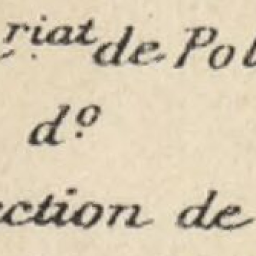 riat de Pol
d.º
ection de